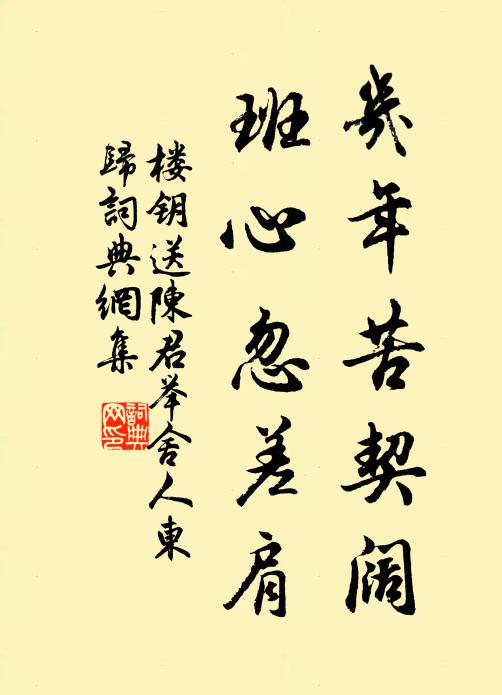 幾年苦契阔
班心忽差肩
楼钥送陳君举舍人東
歸詞典網集
詞典
网印